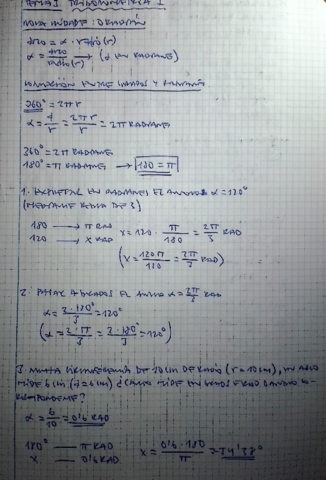 TEMA 1 TRIGONOMETRÍA I
NOVA UNIDADE: O RADIÁN
ARCO = α · RADIO (r)
α = ARCO/RADIO(r) → (α EN RADIANES)
RELACIÓN ENTRE GRADOS Y RADIÁNS
360° = 2πr
α = l/r = 2πr/r = 2π RADIANES
360° = 2π RADIANES
180° = π RADIANES → 180 = π
1. EXPRESAR EN RADIANES EL ANGULO α = 120°
(MEDIANTE REGLA DE 3)
180 → π RAD
120 → X RAD
X = 120 · π/180 = 2π/3 RAD
(X = 120π/180 = 2π/3 RAD)
2. PASAR A GRADOS EL ANGULO α = 2π/3 RAD
α = 2·180°/3 = 120°
(α = 2·π/3 = 2·180°/3 = 120°)
3. NUNHA CIRCUNFERENCIA DE 10 cm DE RADIO (r = 10 cm), UN ARCO
MIDE 6 cm ¿CANTO MIDE EN GRAOS E RAD O ANGULO
CORRESPONDENTE?
α = 6/10 = 0'6 RAD
180° — π RAD
X — 0'6 RAD
X = 0'6·180/π = 34'38°